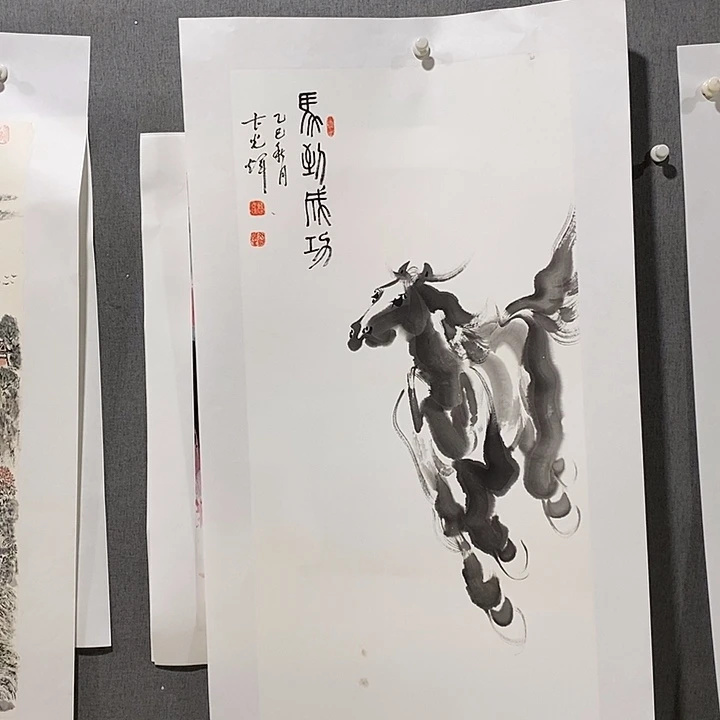 馬到成功
乙巳秋月
卞光煇